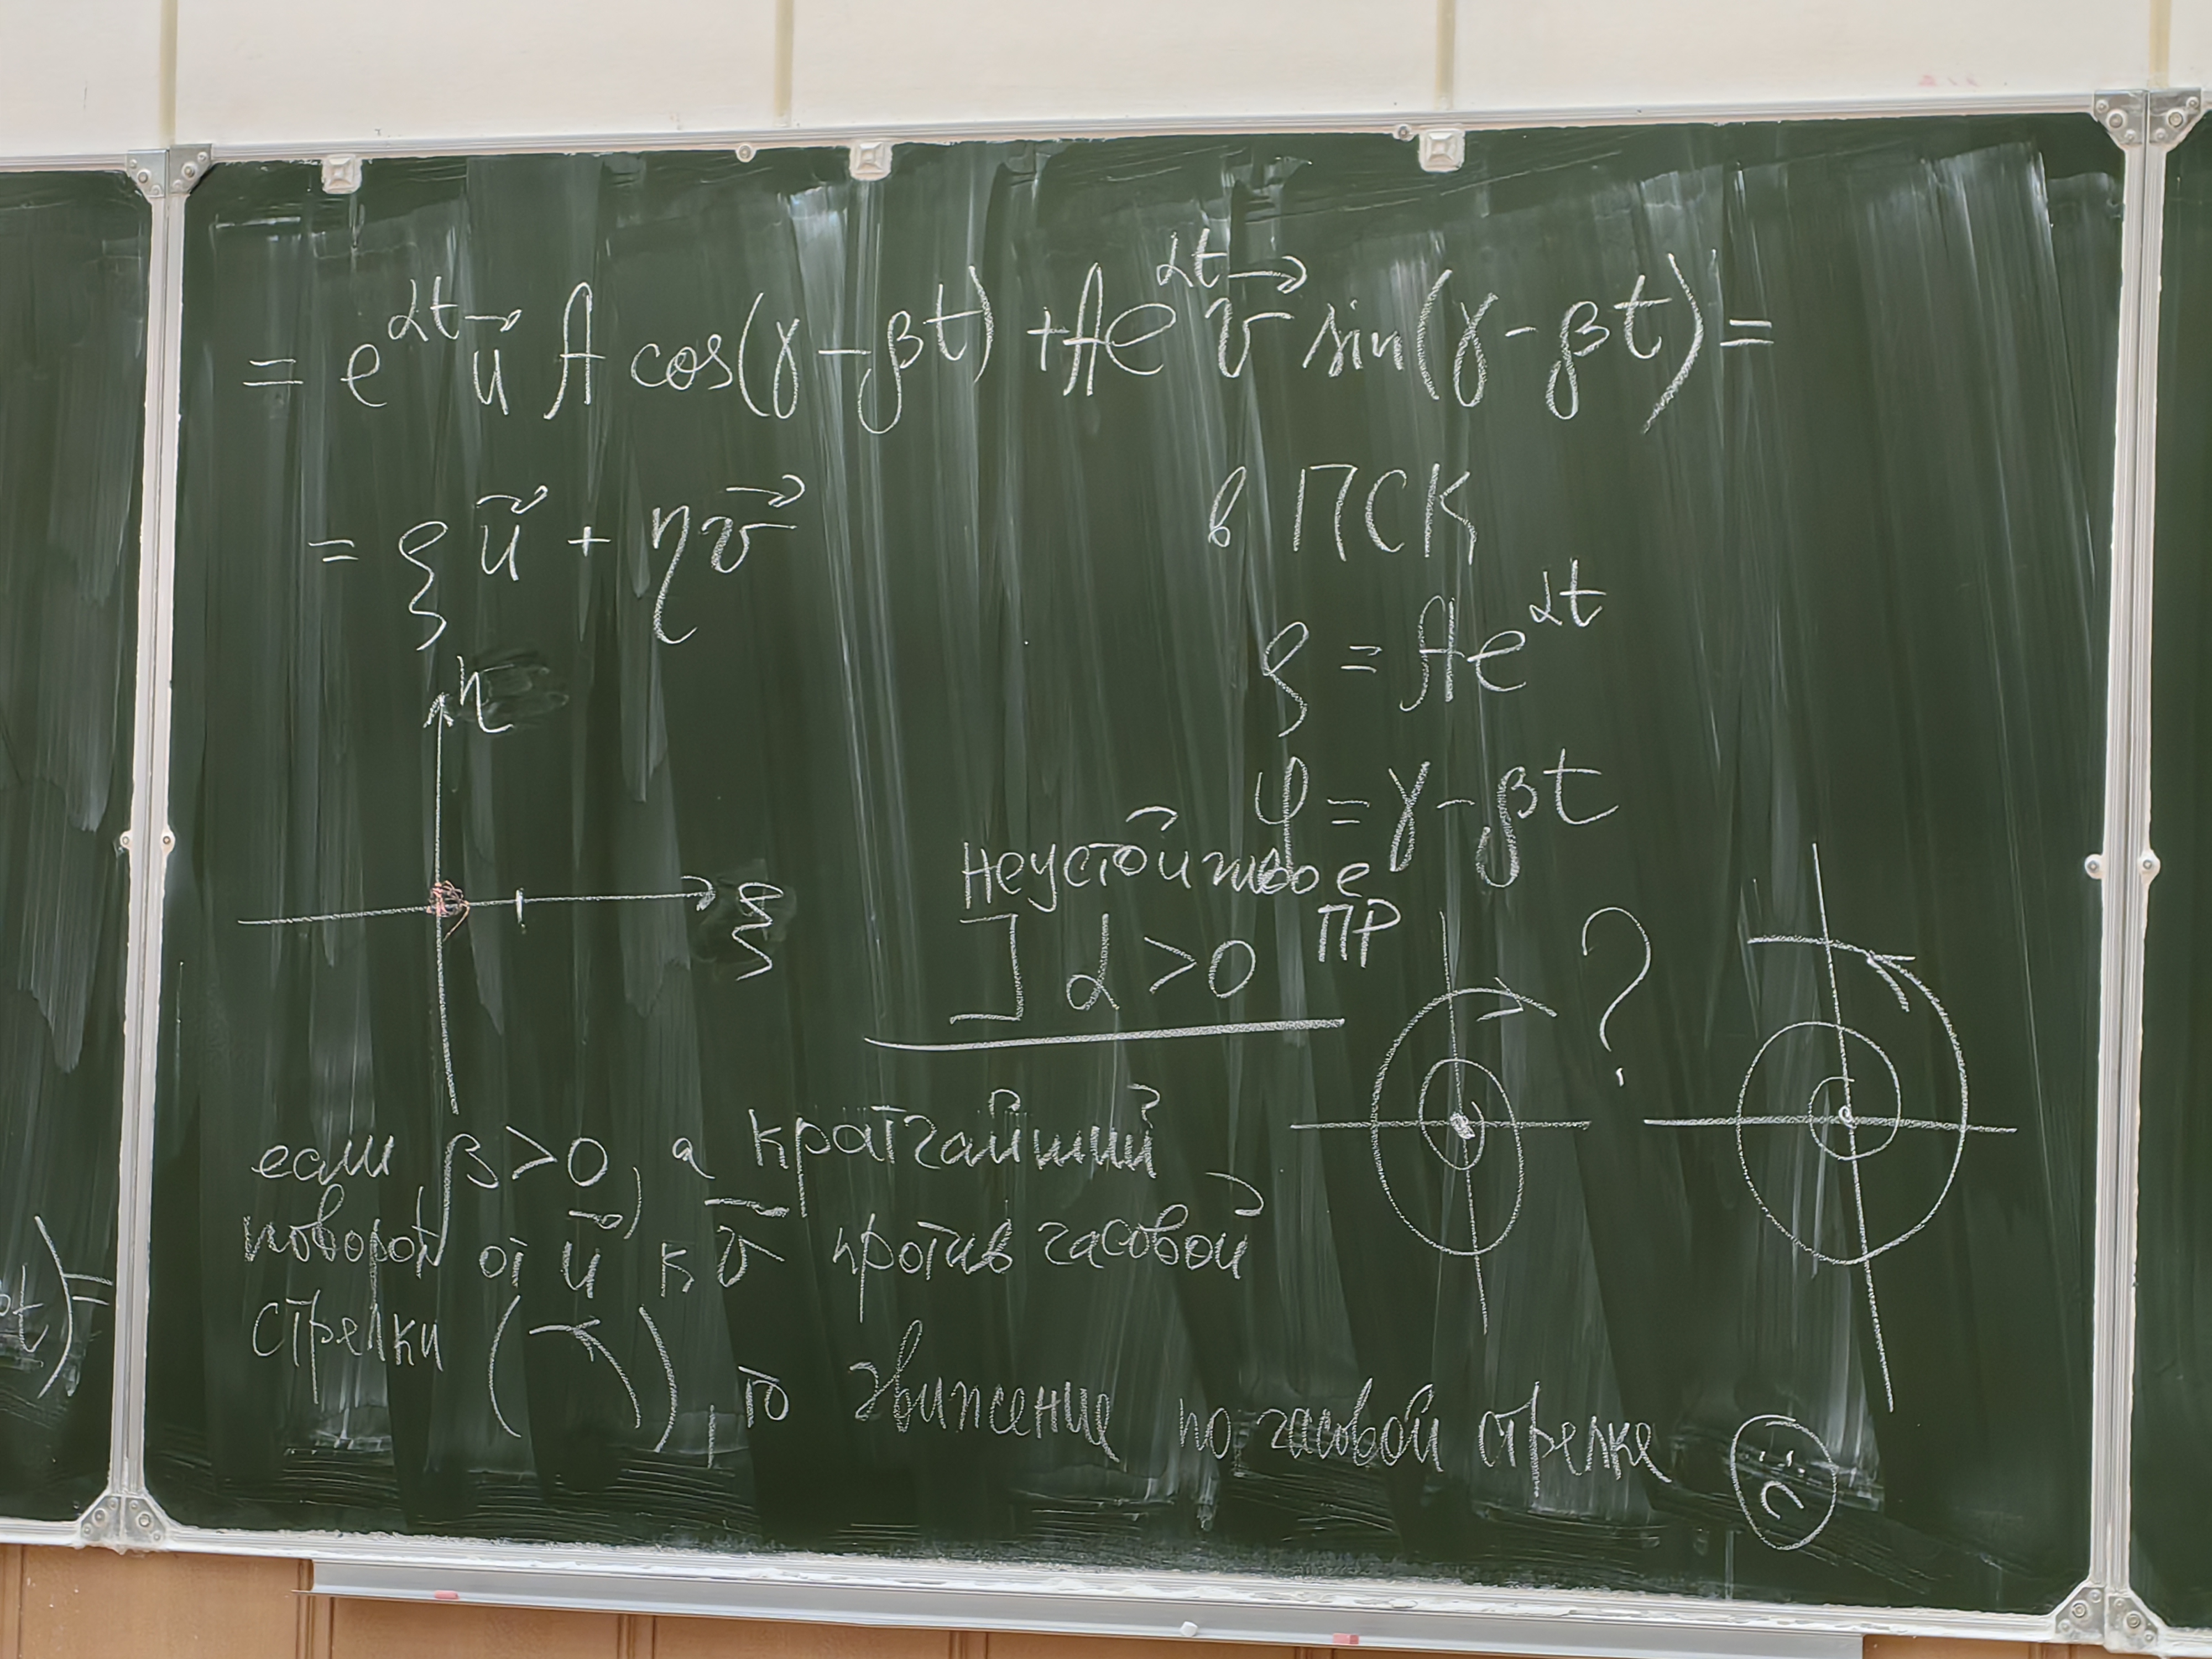 = e^{αt} \vec{u} A cos(γ - βt) + A e^{αt} \vec{v} sin(γ - βt) =
= ξ \vec{u} + η \vec{v}
в ПСК
ρ = A e^{αt}
φ = γ - βt
η
ξ
неустойчивое
ПР
] α > 0
?
если β > 0, а кратчайший
поворот от \vec{u} к \vec{v} против часовой
стрелки ( ), то движение по часовой стрелке
t) =